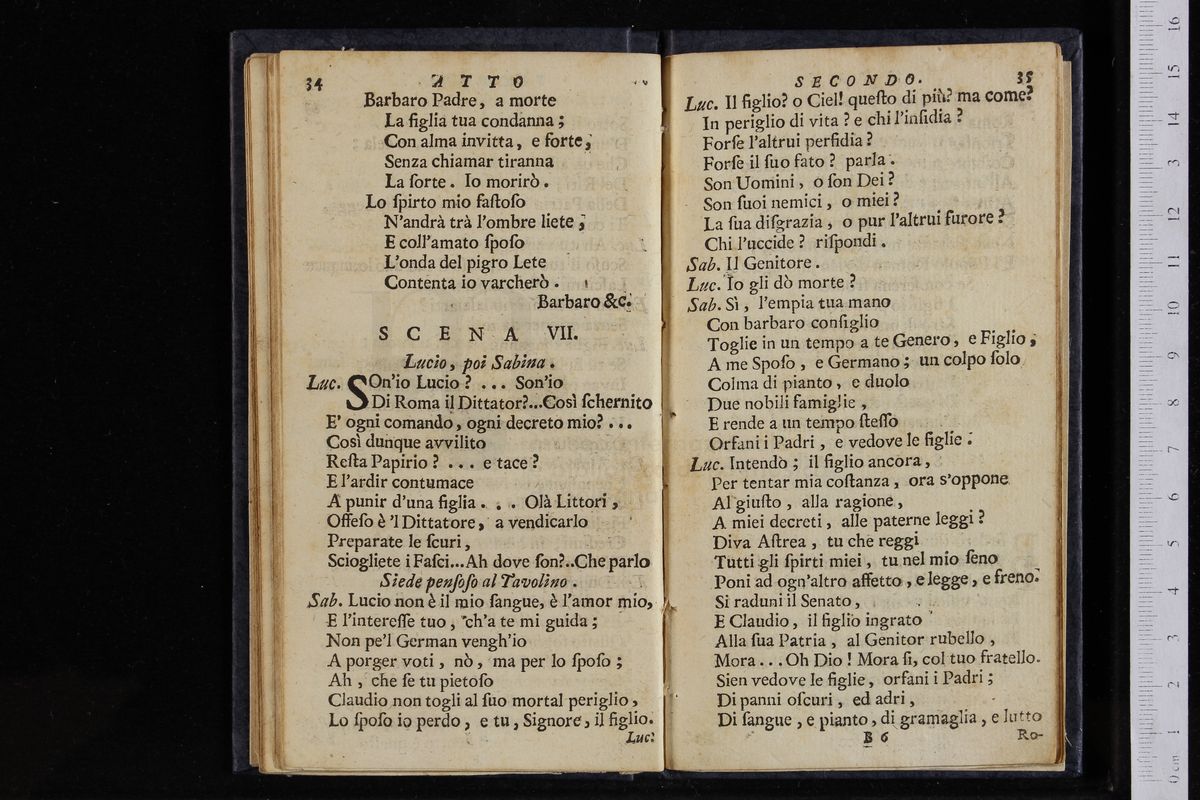 34 ATTO
Barbaro Padre, a morte
La figlia tua condanna;
Con alma invitta, e forte,
Senza chiamar tiranna
La ſorte. Io morirò.
Lo ſpirto mio faſtoſo
N'andrà trà l'ombre liete;
E coll'amato ſpoſo
L'onda del pigro Lete
Contenta io varcherò.
Barbaro &c.
SCENA VII.
Lucio, poi Sabina.
Luc. SOn'io Lucio? ... Son'io
Di Roma il Dittator?...Così ſchernito
E' ogni comando, ogni decreto mio? ...
Così dunque avvilito
Reſta Papirio? ... e tace?
E l'ardir contumace
A punir d'una figlia... Olà Littori,
Offeſo è 'l Dittatore, a vendicarlo
Preparate le ſcuri,
Sciogliete i Faſci...Ah dove ſon?..Che parlo
Siede penſoſo al Tavolino.
Sab. Lucio non è il mio ſangue, è l'amor mio,
E l'intereſſe tuo, ch'a te mi guida;
Non pe'l German vengh'io
A porger voti, nò, ma per lo ſpoſo;
Ah, che ſe tu pietoſo
Claudio non togli al ſuo mortal periglio,
Lo ſpoſo io perdo, e tu, Signore, il figlio.
Luc.
SECONDO. 35
Luc. Il figlio? o Ciel! queſto di più? ma come?
In periglio di vita? e chi l'inſidia?
Forſe l'altrui perfidia?
Forſe il ſuo fato? parla.
Son Uomini, o ſon Dei?
Son ſuoi nemici, o miei?
La ſua diſgrazia, o pur l'altrui furore?
Chi l'uccide? riſpondi.
Sab. Il Genitore.
Luc. Io gli dò morte?
Sab. Sì, l'empia tua mano
Con barbaro conſiglio
Toglie in un tempo a te Genero, e Figlio;
A me Spoſo, e Germano; un colpo ſolo
Colma di pianto, e duolo
Due nobili famiglie,
E rende a un tempo ſteſſo
Orfani i Padri, e vedove le figlie.
Luc. Intendo; il figlio ancora,
Per tentar mia coſtanza, ora s'oppone
Al giuſto, alla ragione,
A miei decreti, alle paterne leggi?
Diva Aſtrea, tu che reggi
Tutti gli ſpirti miei, tu nel mio ſeno
Poni ad ogn'altro affetto, e legge, e freno.
Si raduni il Senato,
E Claudio, il figlio ingrato
Alla ſua Patria, al Genitor rubello,
Mora...Oh Dio! Mora ſi, col tuo fratello.
Sien vedove le figlie, orfani i Padri;
Di panni oſcuri, ed adri,
Di ſangue, e pianto, di gramaglia, e lutto
B 6 Ro-
0 cm 1 2 3 4 5 6 7 8 9 10 11 12 13 14 15 16